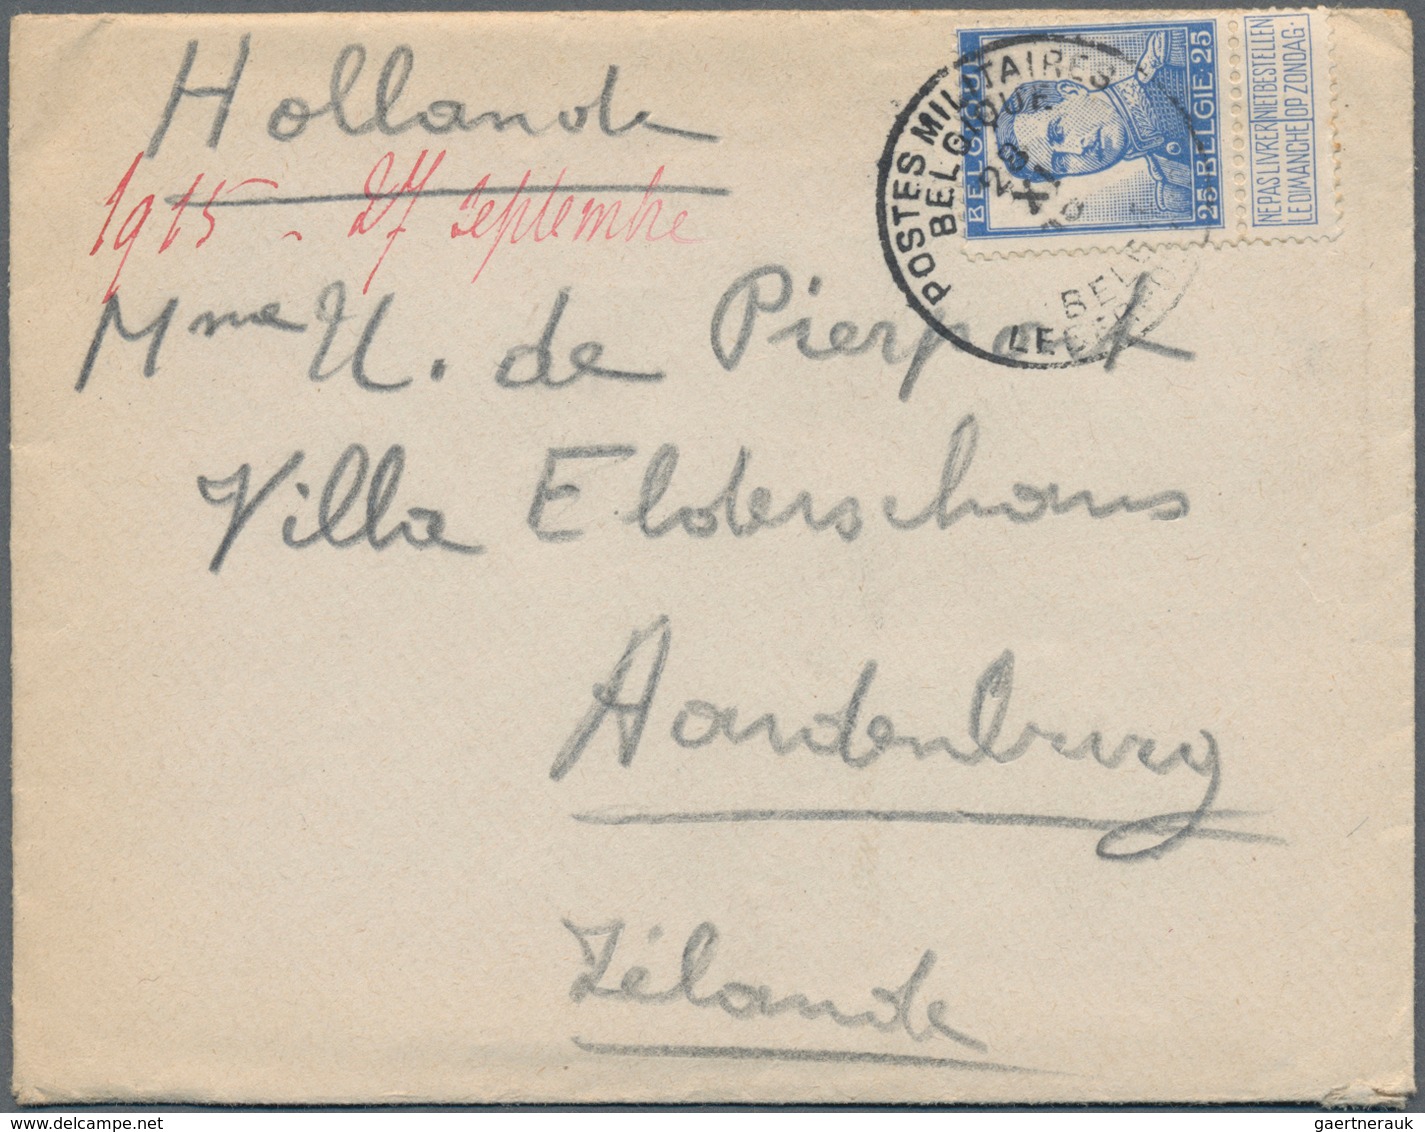 Hollande
1915 - 27 septembre
Mme U. de Pierpont
Villa Elderschans
Aardenburg
Zélande
BELGIQUE
25 BELGIE 25
NE PAS LIVRER NIET BESTELLEN
LE DIMANCHE OP ZONDAG.
POSTES MILITAIRES
BELGIQUE
28
XI
gaertnerauk
www.delcampe.net